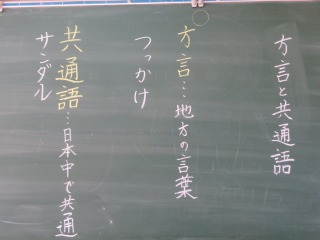 方言と共通語
方言…地方の言葉
つっかけ
共通語…日本中で共通
サンダル